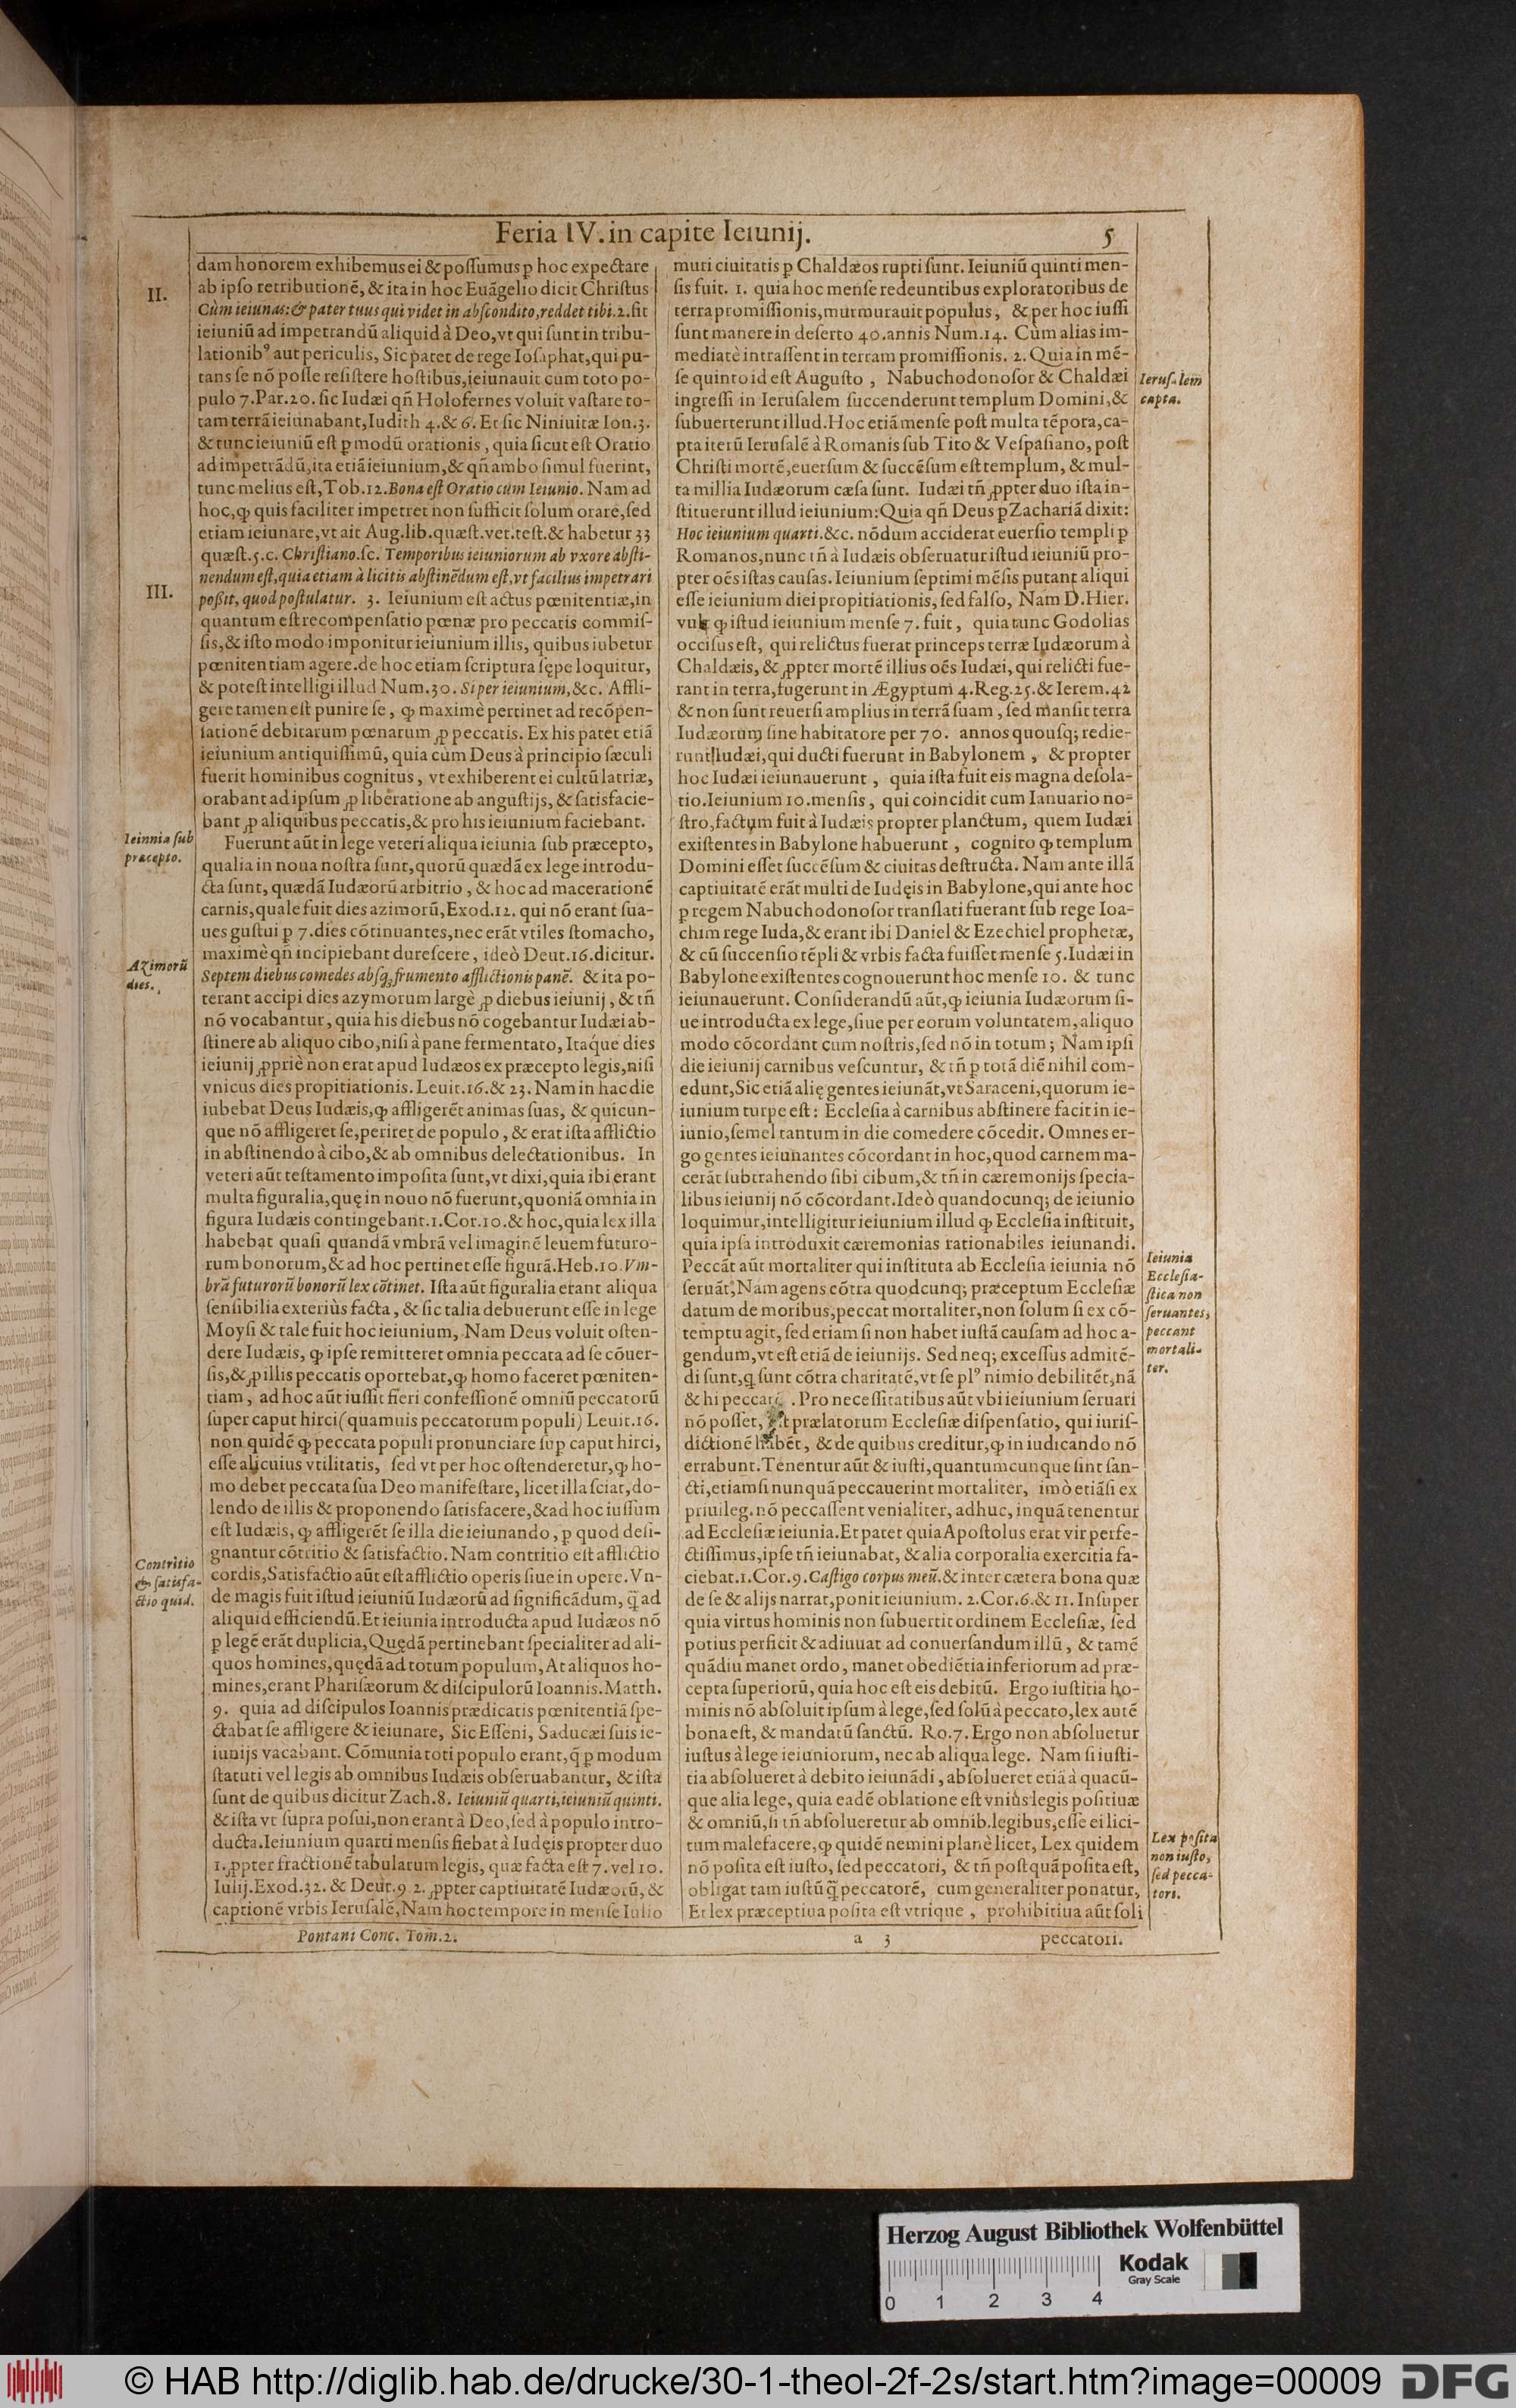 Feria IV. in capite Ieiunij. 5
II.
dam honorem exhibemus ei & poſſumus ꝑ hoc expectare
ab ipſo retributionē, & ita in hoc Euãgelio dicit Chriſtus
Cùm ieiunas: & pater tuus qui videt in abſcondito, reddet tibi. 2. fit
ieiuniũ ad impetrandũ aliquid à Deo, vt qui ſunt in tribu-
lationibꝰ aut periculis, Sic patet de rege Ioſaphat, qui pu-
tans ſe nõ poſſe reſiſtere hoſtibus, ieiunauit cum toto po-
pulo 7. Par. 20. ſic Iudæi qñ Holofernes voluit vaſtare to-
tam terrã ieiunabant, Iudith 4. & 6. Et ſic Niniuitæ Ion. 3.
& tunc ieiuniũ eſt ꝑ modũ orationis, quia ſicut eſt Oratio
ad impetrãdũ, ita etiã ieiunium, & qñ ambo ſimul fuerint,
tunc melius eſt, Tob. 12. Bona eſt Oratio cùm Ieiunio. Nam ad
hoc, ꝙ quis faciliter impetret non ſufficit ſolum orare, ſed
etiam ieiunare, vt ait Aug. lib. quæſt. vet. teſt. & habetur 33
quæſt. 5. c. Chriſtiano. ſc. Temporibus ieiuniorum ab vxore abſti-
nendum eſt, quia etiam à licitis abſtinẽdum eſt, vt facilius impetrari
III.
poßit, quod poſtulatur. 3. Ieiunium eſt actus pœnitentiæ, in
quantum eſt recompenſatio pœnæ pro peccatis commiſ-
ſis, & iſto modo imponitur ieiunium illis, quibus iubetur
pœnitentiam agere. de hoc etiam ſcriptura ſępe loquitur,
& poteſt intelligi illud Num. 30. Si per ieiunium, &c. Affli-
gere tamen eſt punire ſe, ꝙ maximè pertinet ad recõpen-
ſationē debitarum pœnarum ꝓ peccatis. Ex his patet etiã
ieiunium antiquiſſimũ, quia cùm Deus à principio ſæculi
fuerit hominibus cognitus, vt exhiberent ei cultũ latriæ,
orabant ad ipſum ꝓ liberatione ab anguſtijs, & ſatisfacie-
bant ꝓ aliquibus peccatis, & pro his ieiunium faciebant.
Ieiunia ſub
præcepto.
Fuerunt aũt in lege veteri aliqua ieiunia ſub præcepto,
qualia in noua noſtra ſunt, quorũ quædã ex lege introdu-
cta ſunt, quædã Iudæorũ arbitrio, & hoc ad macerationē
carnis, quale fuit dies azimorũ, Exod. 12. qui nõ erant ſua-
ues guſtui ꝑ 7. dies cõtinuantes, nec erãt vtiles ſtomacho,
maximè qñ incipiebant dureſcere, ideò Deut. 16. dicitur.
Azimorũ
dies.
Septem diebus comedes abſqꝫ frumento afflictionis panẽ. & ita po-
terant accipi dies azymorum largè ꝓ diebus ieiunij, & tñ
nõ vocabantur, quia his diebus nõ cogebantur Iudæi ab-
ſtinere ab aliquo cibo, niſi à pane fermentato, Itaq́ue dies
ieiunij ꝓpriè non erat apud Iudæos ex præcepto legis, niſi
vnicus dies propitiationis. Leuit. 16. & 23. Nam in hac die
iubebat Deus Iudæis, ꝙ affligerēt animas ſuas, & quicun-
que nõ affligeret ſe, periret de populo, & erat iſta afflictio
in abſtinendo à cibo, & ab omnibus delectationibus. In
veteri aũt teſtamento impoſita ſunt, vt dixi, quia ibi erant
multa figuralia, quę in nouo nõ fuerunt, quoniã omnia in
figura Iudæis contingebant. 1. Cor. 10. & hoc, quia lex illa
habebat quaſi quandã vmbrã vel imaginē leuem futuro-
rum bonorum, & ad hoc pertinet eſſe figurã. Heb. 10. Vm-
brã futurorũ bonorũ lex cõtinet. Iſta aũt figuralia erant aliqua
ſenſibilia exteriùs facta, & ſic talia debuerunt eſſe in lege
Moyſi & tale fuit hoc ieiunium, Nam Deus voluit oſten-
dere Iudæis, ꝙ ipſe remitteret omnia peccata ad ſe cõuer-
ſis, & ꝓ illis peccatis oportebat, ꝙ homo faceret pœniten-
tiam, ad hoc aũt iuſſit fieri confeſſionē omniũ peccatorũ
ſuper caput hirci (quamuis peccatorum populi) Leuit. 16.
non quidē ꝙ peccata populi pronunciare ſuꝑ caput hirci,
eſſe alicuius vtilitatis, ſed vt per hoc oſtenderetur, ꝙ ho-
mo debet peccata ſua Deo manifeſtare, licet illa ſciat, do-
lendo de illis & proponendo ſatisfacere, & ad hoc iuſſum
eſt Iudæis, ꝙ affligerēt ſe illa die ieiunando, ꝑ quod deſi-
Contritio
& ſatisfa-
ctio quid.
gnantur cõtritio & ſatisfactio. Nam contritio eſt afflictio
cordis, Satisfactio aũt eſt afflictio operis ſiue in opere. Vn-
de magis fuit iſtud ieiuniũ Iudæorũ ad ſignificãdum, q̃ ad
aliquid efficiendũ. Et ieiunia introducta apud Iudæos nõ
ꝑ legē erãt duplicia, Quędã pertinebant ſpecialiter ad ali-
quos homines, quędã ad totum populum, At aliquos ho-
mines, erant Phariſæorum & diſcipulorũ Ioannis. Matth.
9. quia ad diſcipulos Ioannis prædicatis pœnitentiã ſpe-
ctabat ſe affligere & ieiunare, Sic Eſſeni, Saducæi ſuis ie-
iunijs vacabant. Cõmunia toti populo erant, q̃ ꝑ modum
ſtatuti vel legis ab omnibus Iudæis obſeruabantur, & iſta
ſunt de quibus dicitur Zach. 8. Ieiuniũ quarti, ieiuniũ quinti.
& iſta vt ſupra poſui, non erant à Deo, ſed à populo intro-
ducta. Ieiunium quarti menſis fiebat à Iudęis propter duo
1. ꝓpter fractionē tabularum legis, quæ facta eſt 7. vel 10.
Iulij. Exod. 32. & Deut. 9 2. ꝓpter captiuitatē Iudæorũ, &
captionē vrbis Ieruſalē, Nam hoc tempore in menſe Iulio
Pontani Conc. Tom. 2.
muri ciuitatis ꝑ Chaldæos rupti ſunt. Ieiuniũ quinti men-
ſis fuit. 1. quia hoc menſe redeuntibus exploratoribus de
terra promiſſionis, murmurauit populus, & per hoc iuſſi
ſunt manere in deſerto 40. annis Num. 14. Cùm alias im-
mediatè intraſſent in terram promiſſionis. 2. Quia in mē-
ſe quinto id eſt Auguſto, Nabuchodonoſor & Chaldæi
Ieruſalem
capta.
ingreſſi in Ieruſalem ſuccenderunt templum Domini, &
ſubuerterunt illud. Hoc etiã menſe poſt multa tēpora, ca-
pta iterũ Ieruſalē à Romanis ſub Tito & Veſpaſiano, poſt
Chriſti mortē, euerſum & ſuccēſum eſt templum, & mul-
ta millia Iudæorum cæſa ſunt. Iudæi tñ ꝓpter duo iſta in-
ſtituerunt illud ieiunium: Quia qñ Deus ꝑ Zachariã dixit:
Hoc ieiunium quarti. &c. nõdum acciderat euerſio templi ꝑ
Romanos, nunc tñ à Iudæis obſeruatur iſtud ieiuniũ pro-
pter oēs iſtas cauſas. Ieiunium ſeptimi mēſis putant aliqui
eſſe ieiunium diei propitiationis, ſed falſo, Nam D. Hier.
vult ꝙ iſtud ieiunium menſe 7. fuit, quia tunc Godolias
occiſus eſt, qui relictus fuerat princeps terræ Iudæorum à
Chaldæis, & ꝓpter mortē illius oēs Iudæi, qui relicti fue-
rant in terra, fugerunt in Ægyptum 4. Reg. 25. & Ierem. 42
& non ſunt reuerſi amplius in terrã ſuam, ſed manſit terra
Iudæorum ſine habitatore per 70. annos quouſqꝫ redie-
runt Iudæi, qui ducti fuerunt in Babylonem, & propter
hoc Iudæi ieiunauerunt, quia iſta fuit eis magna deſola-
tio. Ieiunium 10. menſis, qui coincidit cum Ianuario no-
ſtro, factum fuit à Iudæis propter planctum, quem Iudæi
exiſtentes in Babylone habuerunt, cognito ꝙ templum
Domini eſſet ſuccēſum & ciuitas deſtructa. Nam ante illã
captiuitatē erãt multi de Iudęis in Babylone, qui ante hoc
ꝑ regem Nabuchodonoſor tranſlati fuerant ſub rege Ioa-
chim rege Iuda, & erant ibi Daniel & Ezechiel prophetæ,
& cũ ſuccenſio tēpli & vrbis facta fuiſſet menſe 5. Iudæi in
Babylone exiſtentes cognouerunt hoc menſe 10. & tunc
ieiunauerunt. Conſiderandũ aũt, ꝙ ieiunia Iudæorum ſi-
ue introducta ex lege, ſiue per eorum voluntatem, aliquo
modo cõcordant cum noſtris, ſed nõ in totum; Nam ipſi
die ieiunij carnibus veſcuntur, & tñ ꝑ totã diē nihil com-
edunt, Sic etiã alię gentes ieiunãt, vt Saraceni, quorum ie-
iunium turpe eſt: Eccleſia à carnibus abſtinere facit in ie-
iunio, ſemel tantum in die comedere cõcedit. Omnes er-
go gentes ieiunantes cõcordant in hoc, quod carnem ma-
cerãt ſubtrahendo ſibi cibum, & tñ in cæremonijs ſpecia-
libus ieiunij nõ cõcordant. Ideò quandocunqꝫ de ieiunio
loquimur, intelligitur ieiunium illud ꝙ Eccleſia inſtituit,
quia ipſa introduxit cæremonias rationabiles ieiunandi.
Ieiunia
Eccleſia-
ſtica non
ſeruantes,
peccant
mortali-
ter.
Peccãt aũt mortaliter qui inſtituta ab Eccleſia ieiunia nõ
ſeruãt, Nam agens cõtra quodcunqꝫ præceptum Eccleſiæ
datum de moribus, peccat mortaliter, non ſolum ſi ex cõ-
temptu agit, ſed etiam ſi non habet iuſtã cauſam ad hoc a-
gendum, vt eſt etiã de ieiunijs. Sed neqꝫ exceſſus admitē-
di ſunt, q ſunt cõtra charitatē, vt ſe plꝰ nimio debilitēt, nã
& hi peccant. Pro neceſſitatibus aũt vbi ieiunium ſeruari
nõ poſſet, ſit prælatorum Eccleſiæ diſpenſatio, qui iuriſ-
dictionē habēt, & de quibus creditur, ꝙ in iudicando nõ
errabunt. Tenentur aũt & iuſti, quantumcunque ſint ſan-
cti, etiamſi nunquã peccauerint mortaliter, imò etiãſi ex
priuileg. nõ peccaſſent venialiter, adhuc, inquã tenentur
ad Eccleſiæ ieiunia. Et patet quia Apoſtolus erat vir perfe-
ctiſſimus, ipſe tñ ieiunabat, & alia corporalia exercitia fa-
ciebat. 1. Cor. 9. Caſtigo corpus meũ. & inter cætera bona quæ
de ſe & alijs narrat, ponit ieiunium. 2. Cor. 6. & 11. Inſuper
quia virtus hominis non ſubuertit ordinem Eccleſiæ, ſed
potius perficit & adiuuat ad conuerſandum illũ, & tamē
quãdiu manet ordo, manet obediētia inferiorum ad præ-
cepta ſuperiorũ, quia hoc eſt eis debitũ. Ergo iuſtitia ho-
minis nõ abſoluit ipſum à lege, ſed ſolũ à peccato, lex autē
bona eſt, & mandatũ ſanctũ. Ro. 7. Ergo non abſoluetur
iuſtus à lege ieiuniorum, nec ab aliqua lege. Nam ſi iuſti-
tia abſolueret à debito ieiunãdi, abſolueret etiã à quacũ-
que alia lege, quia eadē oblatione eſt vniùs legis poſitiuæ
& omniũ, ſi tñ abſolueretur ab omnib. legibus, eſſe ei lici-
Lex poſita
non iuſto,
ſed pecca-
tori.
tum malefacere, ꝙ quidē nemini planè licet, Lex quidem
nõ poſita eſt iuſto, ſed peccatori, & tñ poſtquã poſita eſt,
obligat tam iuſtũ q̃ peccatorē, cum generaliter ponatur,
Et lex præceptiua poſita eſt vtrique, prohibitiua aũt ſoli
a 3 peccatori.
Herzog August Bibliothek Wolfenbüttel
Kodak
Gray Scale
0 1 2 3 4
© HAB http://diglib.hab.de/drucke/30-1-theol-2f-2s/start.htm?image=00009 DFG